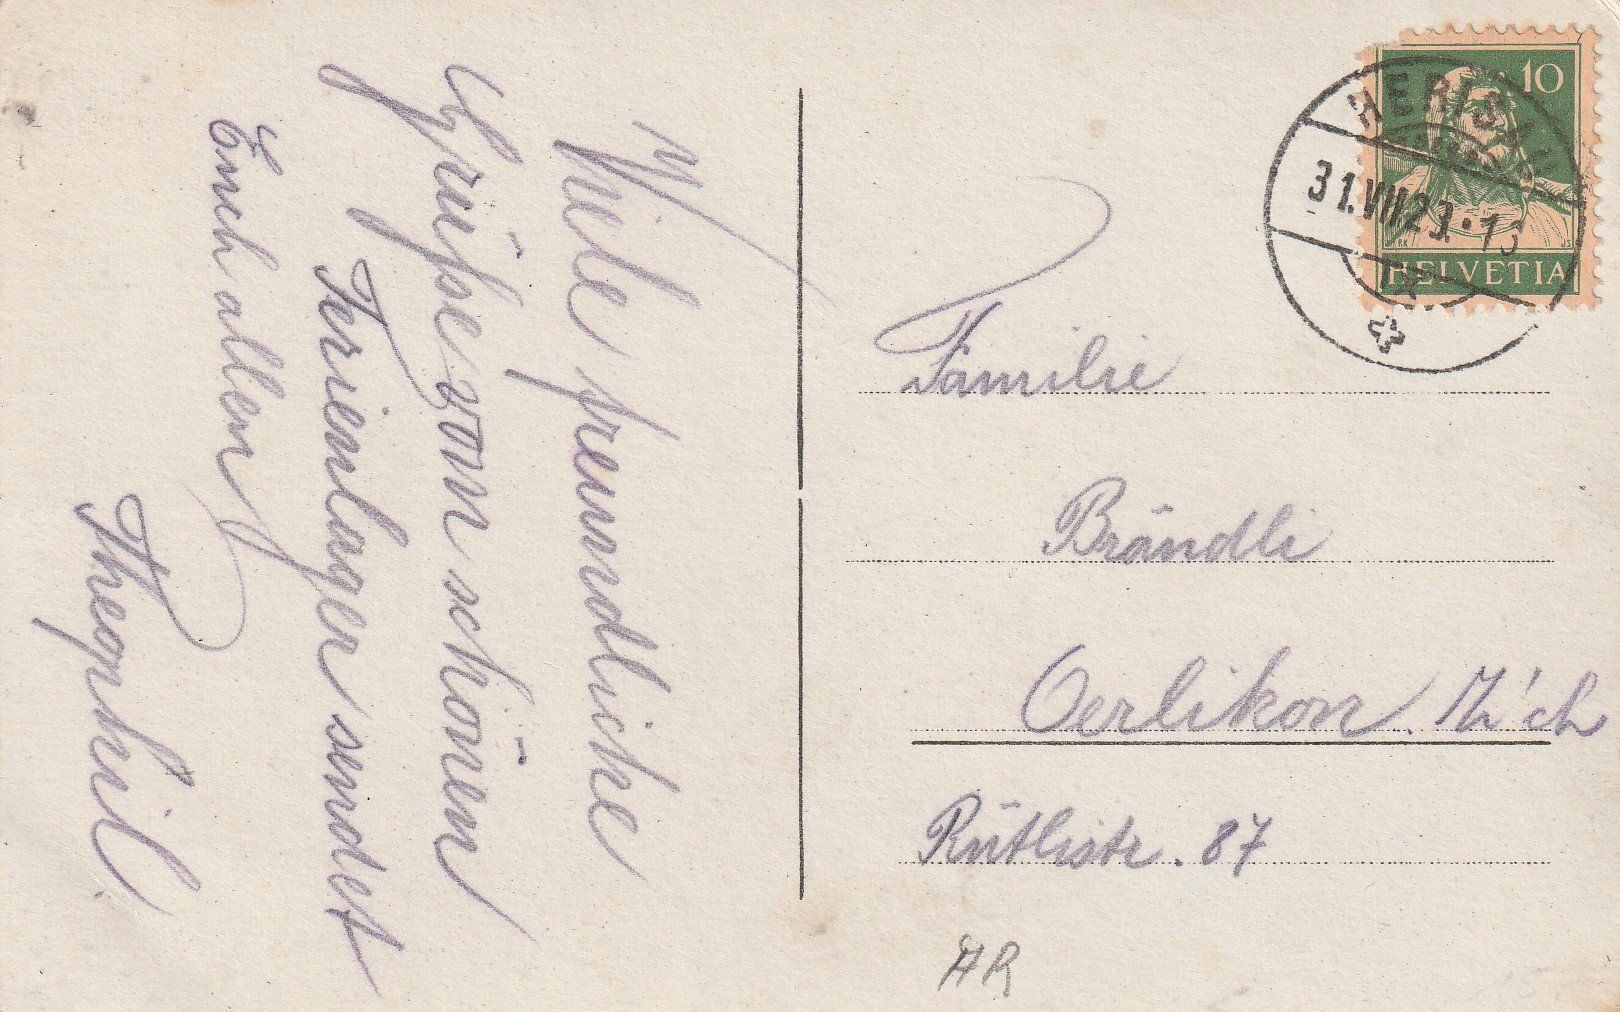 Viele freundliche
Grüsse vom schönen
Ferienlager sendet
Euch allen
Theophil.
10
HERISAU
31.VII.23.
HELVETIA
Familie
Brändli
Oerlikon. Z'ch
Rütlistr. 87
AR